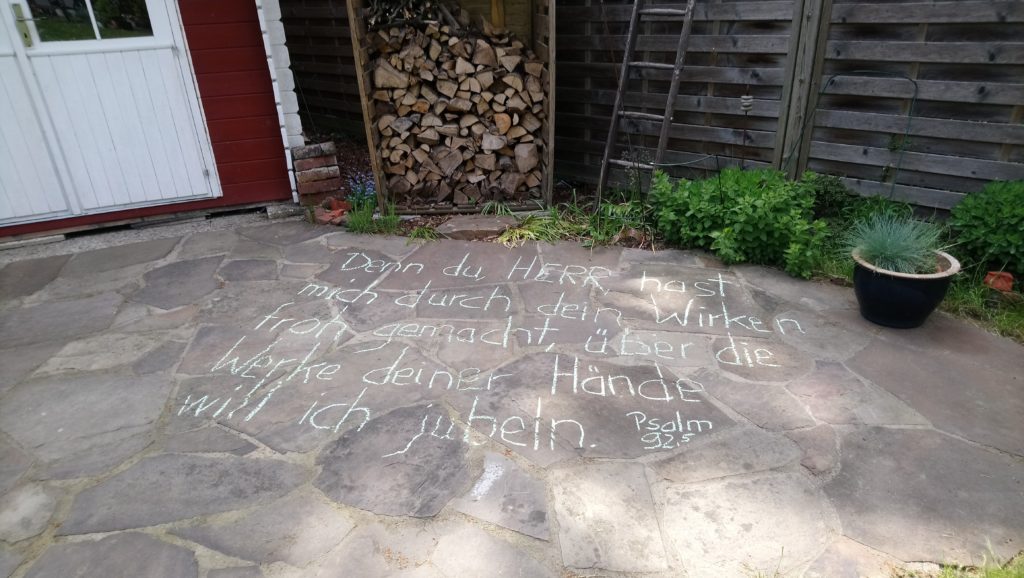 Denn du HERR, hast
mich durch dein Wirken
froh gemacht, über die
Werke deiner Hände
will ich jubeln. Psalm
92,5